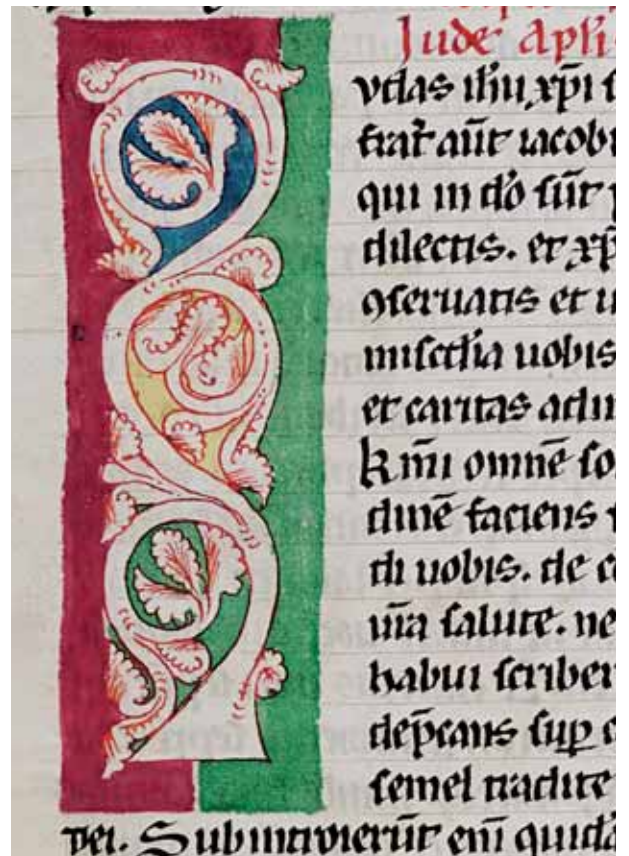 Jude apl'i
vdas ih'u xp̄i s
frat' aūt iacobi
qui in dō sūt
dilectis. et xp̄
ꝯseruatis et u
mis'cdia uobis
et caritas adim
K m̄i omnē so
dinē faciens
di uobis. de cō
ūra salute. ne
habui scriber
dep̄cans suꝑ c
semel tradite
dei. Subintroierūt eni̅ quida